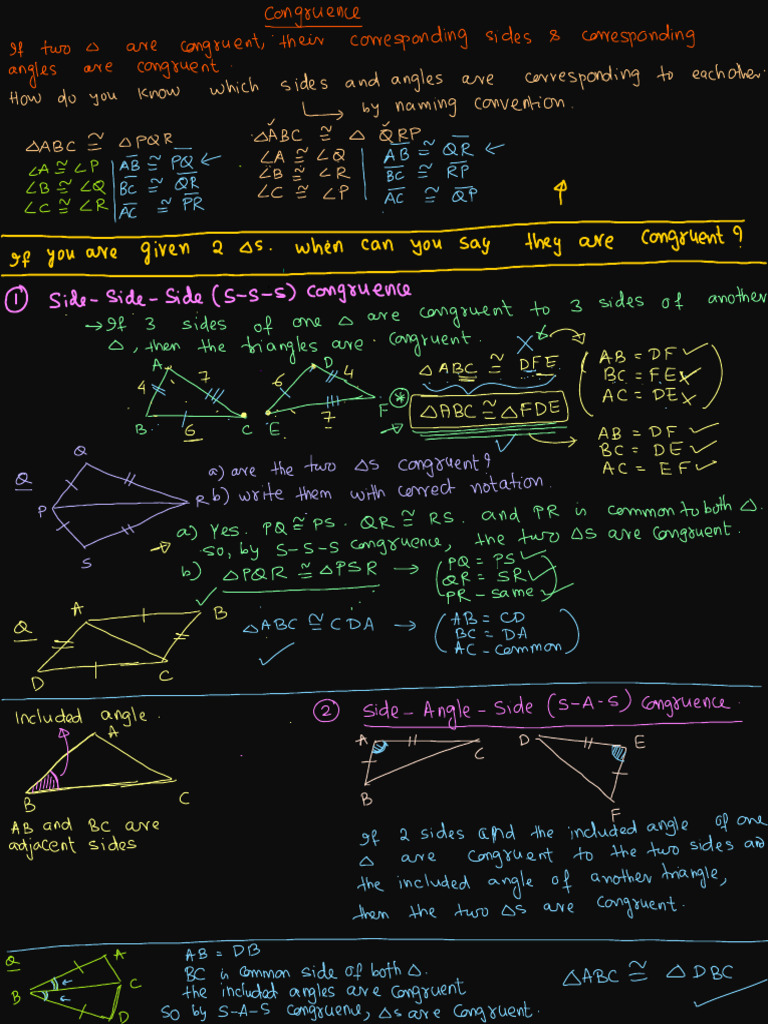 Congruence
If two △ are congruent, their corresponding sides & corresponding
angles are congruent.
How do you know which sides and angles are corresponding to eachother.
by naming convention.
△ABC ≅ △PQR
∠A ≅ ∠P
∠B ≅ ∠Q
∠C ≅ ∠R
AB ≅ PQ ←
BC ≅ QR
AC ≅ PR
△ABC ≅ △ QRP
∠A ≅ ∠Q
∠B ≅ ∠R
∠C ≅ ∠P
AB ≅ QR ←
BC ≅ RP
AC ≅ QP
If you are given 2 △s. when can you say they are congruent?
① Side-Side-Side (S-S-S) Congruence
→ If 3 sides of one △ are congruent to 3 sides of another
△, then the triangles are congruent.
A
4
7
B
6
C
D
6
4
E
7
F
△ABC ≅ DFE
X
AB = DF ✓
BC = FE X
AC = DE X
* △ABC ≅ △FDE
✓
AB = DF ✓
BC = DE ✓
AC = EF ✓
Q
Q
P
R
S
a) are the two △s congruent?
b) write them with correct notation.
→ a) Yes. PQ ≅ PS. QR ≅ RS. and PR is common to both △.
so, by S-S-S congruence, the two △s are congruent.
b) △PQR ≅ △PSR →
✓
PQ = PS ✓
QR = SR ✓
PR - same ✓
Q
A
B
C
D
△ABC ≅ CDA →
✓
AB = CD
BC = DA
AC - common
Included angle.
A
B
C
AB and BC are
adjacent sides
② Side-Angle-Side (S-A-S) Congruence
A
C
B
D
E
F
If 2 sides and the included angle of one
△ are congruent to the two sides and
the included angle of another triangle,
then the two △s are congruent.
Q
A
B
C
D
AB = DB
BC is common side of both △.
the included angles are congruent
So by S-A-S congruence, △s are congruent.
△ABC ≅ △DBC
✓